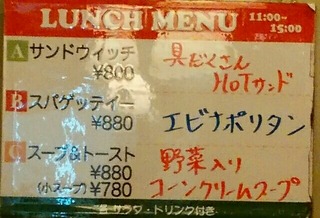 LUNCH MENU 11:00~
15:00
A サンドウィッチ 具だくさん
¥800 HOTサンド
B スパゲッティー
¥880 エビナポリタン
C スープ&トースト 野菜入り
¥880
(小スープ)¥780 コーンクリームスープ
サラダ・ドリンク付き